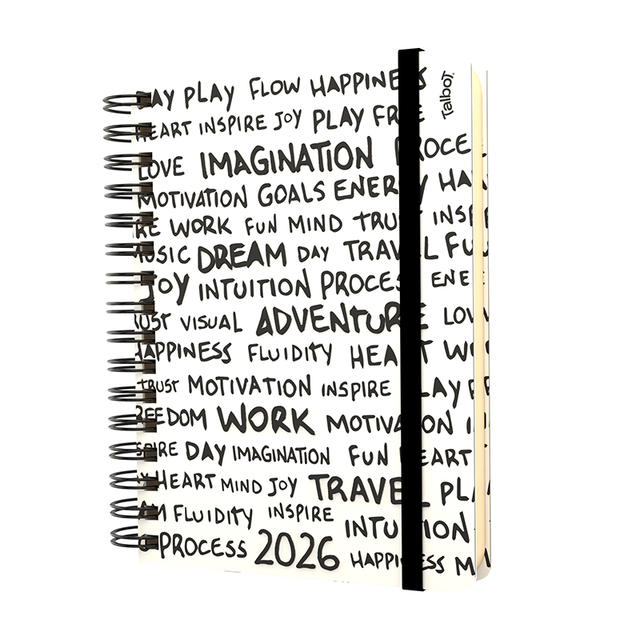 DAY PLAY FLOW HAPPINESS
Talbot
HEART INSPIRE JOY PLAY FREE
LOVE IMAGINATION PROCE
MOTIVATION GOALS ENERGY HA
RE WORK FUN MIND TRUST INSP
MUSIC DREAM DAY TRAVEL FU
JOY INTUITION PROCESS ENE
RUST VISUAL ADVENTURE LOV
HAPPINESS FLUIDITY HEART WO
TRUST MOTIVATION INSPIRE PLAY F
REEDOM WORK MOTIVATION I
SPIRE DAY IMAGINATION FUN HEART
Y HEART MIND JOY TRAVEL PLA
AM FLUIDITY INSPIRE INTUITION
PROCESS 2026 HAPPINESS M